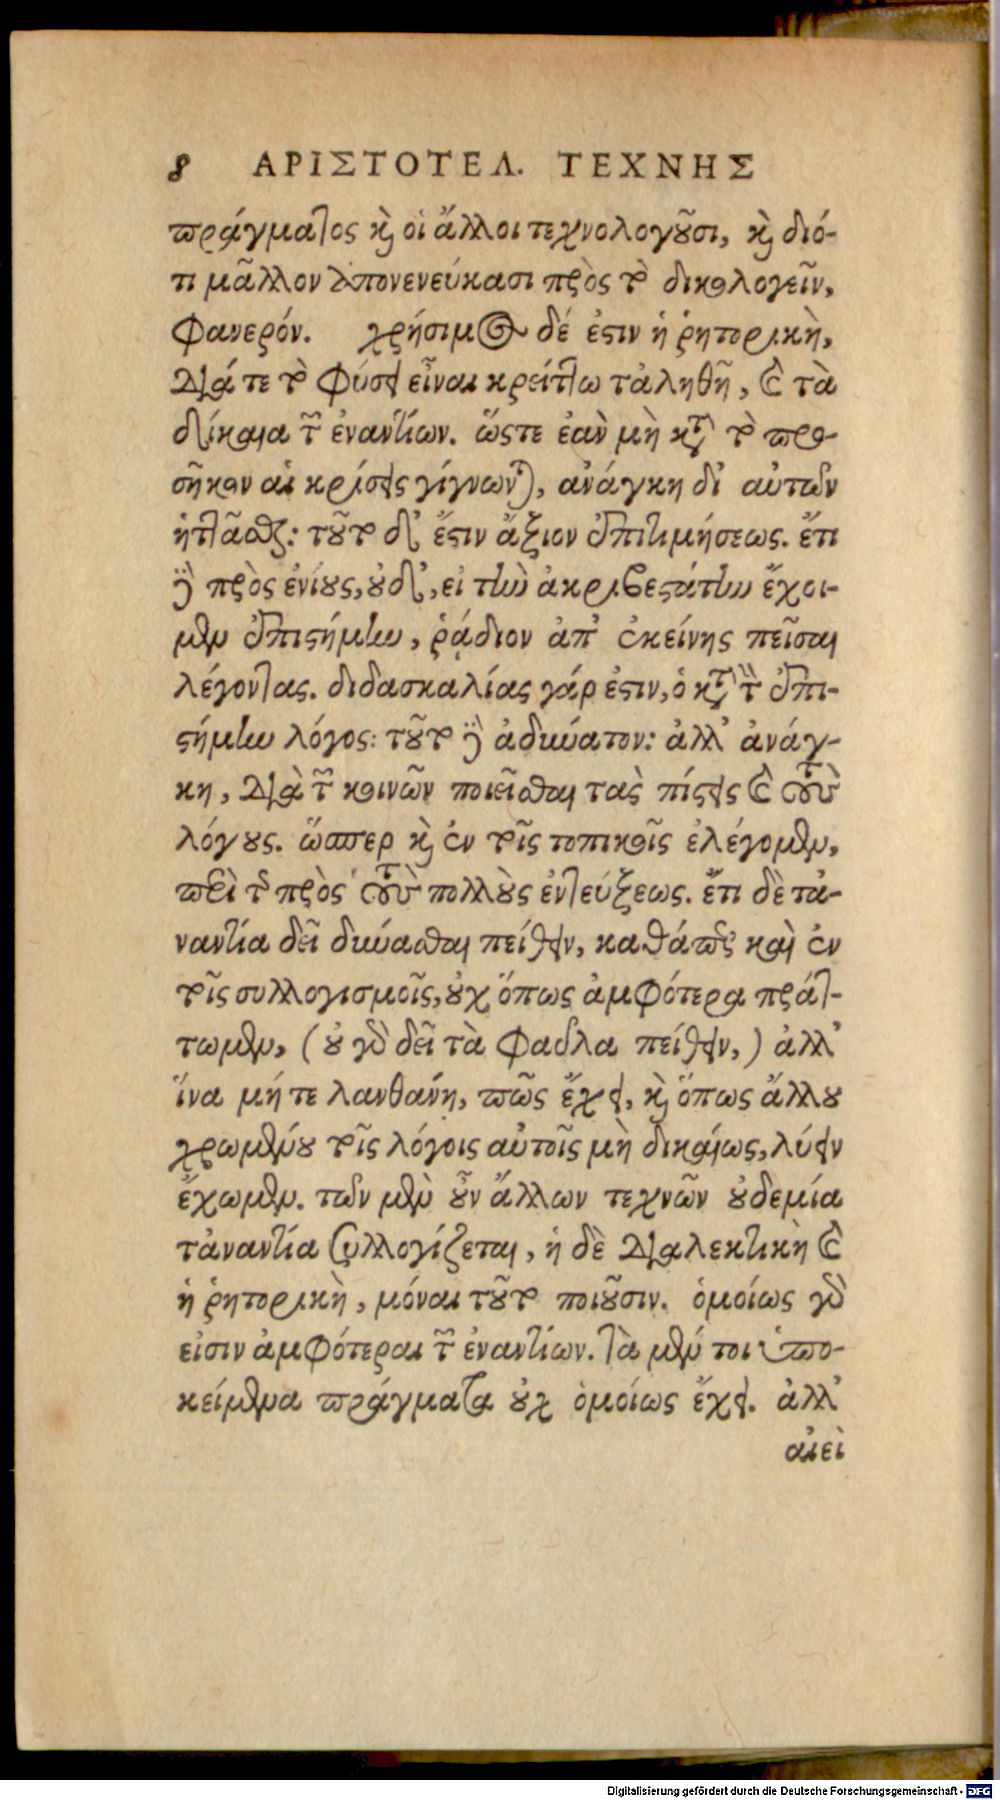 8 ΑΡΙΣΤΟΤΕΛ. ΤΕΧΝΗΣ
πράγματος καὶ οἱ ἄλλοι τεχνολογοῦσι, καὶ διό-
τι μᾶλλον ἀπονενεύκασι πρὸς τὸ δικολογεῖν,
φανερόν. χρήσιμος δέ ἐστιν ἡ ῥητορικὴ,
διά τε τὸ φύσει εἶναι κρείττω τἀληθῆ, καὶ τὰ
δίκαια τῶν ἐναντίων. ὥστε ἐὰν μὴ κατὰ τὸ προ-
σῆκον αἱ κρίσεις γίγνωνται, ἀνάγκη δι' αὐτῶν
ἡττᾶσθαι: τοῦτο δ' ἔστιν ἄξιον ἐπιτιμήσεως. ἔτι
δὲ πρὸς ἐνίους, οὐδ', εἰ τὴν ἀκριβεστάτην ἔχοι-
μεν ἐπιστήμην, ῥᾴδιον ἀπ' ἐκείνης πεῖσαι
λέγοντας. διδασκαλίας γάρ ἐστιν, ὁ κατὰ τὴν ἐπι-
στήμην λόγος: τοῦτο δὲ ἀδύνατον: ἀλλ' ἀνάγ-
κη, διὰ τῶν κοινῶν ποιεῖσθαι τὰς πίστεις καὶ τοὺς
λόγους. ὥσπερ καὶ ἐν τοῖς τοπικοῖς ἐλέγομεν,
περὶ τῆς πρὸς τοὺς πολλοὺς ἐντεύξεως. ἔτι δὲ τἀ-
ναντία δεῖ δύνασθαι πείθειν, καθάπερ καὶ ἐν
τοῖς συλλογισμοῖς, οὐχ ὅπως ἀμφότερα πράτ-
τωμεν, (οὐ γὰρ δεῖ τὰ φαῦλα πείθειν,) ἀλλ'
ἵνα μήτε λανθάνῃ, πῶς ἔχει, καὶ ὅπως ἄλλου
χρωμένου τοῖς λόγοις αὐτοῖς μὴ δικαίως, λύειν
ἔχωμεν. τῶν μὲν οὖν ἄλλων τεχνῶν οὐδεμία
τἀναντία συλλογίζεται, ἡ δὲ διαλεκτικὴ καὶ
ἡ ῥητορικὴ, μόναι τοῦτο ποιοῦσιν. ὁμοίως γὰρ
εἰσιν ἀμφότεραι τῶν ἐναντίων. τὰ μέν τοι ὑπο-
κείμενα πράγματα οὐχ ὁμοίως ἔχει. ἀλλ'
αἰεὶ
Digitalisierung gefördert durch die Deutsche Forschungsgemeinschaft - DFG